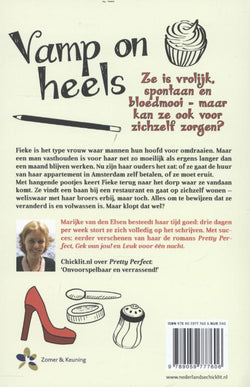 Vamp on
heels
Ze is vrolijk,
spontaan en
bloedmooi - maar
kan ze ook voor
zichzelf zorgen?
Fieke is het type vrouw waar mannen hun hoofd voor omdraaien. Maar
een man vasthouden is voor haar net zo moeilijk als ergens langer dan
een maand blijven werken. Nu zijn haar ouders het zat: of ze gaat de huur
van haar appartement in Amsterdam zelf betalen, of ze moet eruit.
Met hangende pootjes keert Fieke terug naar het dorp waar ze vandaan
komt. Ze vindt een baan bij een restaurant en gaat op zichzelf wonen –
weliswaar met haar broers erbij, maar toch. Alles om te bewijzen dat ze
veranderd is en volwassen is. Maar klopt dat wel?
Marijke van den Elsen besteedt haar tijd goed: drie dagen
per week stort ze zich volledig op het schrijven. Met suc-
ces: eerder verschenen van haar de romans Pretty Per-
fect, Gek van jou! en Leuk voor één nacht.
Chicklit.nl over Pretty Perfect:
'Onvoorspelbaar en verrassend!'
Zomer & Keuning
9 789059 777606
www.nederlandsechicklit.nl